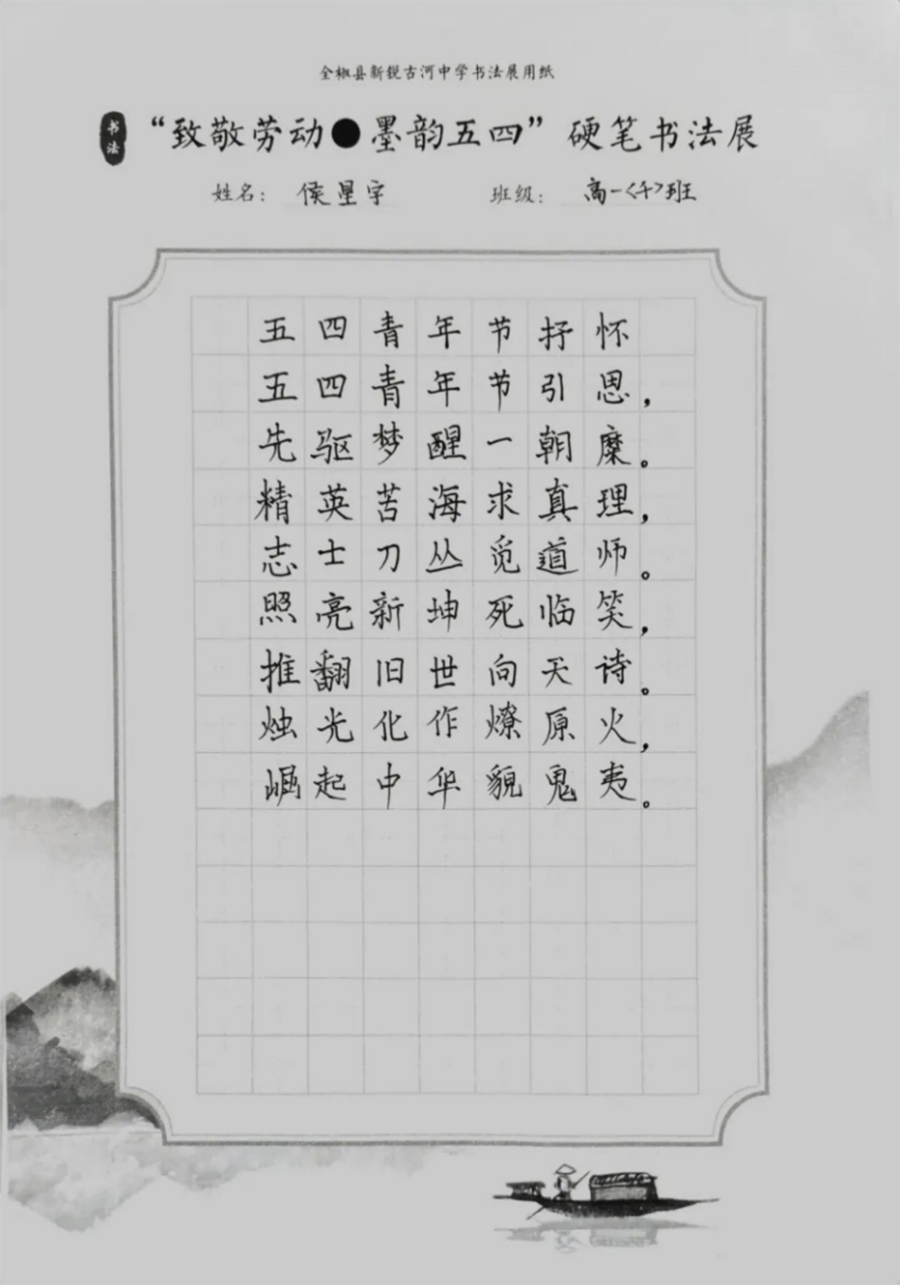 全椒县新锐古河中学书法展用纸
书法
“致敬劳动●墨韵五四”硬笔书法展
姓名：侯星宇 班级：高一<千>班
五四青年节抒怀
五四青年节引思，
先驱梦醒一朝糜。
精英苦海求真理，
志士刀丛觅道师。
照亮新坤死临笑，
推翻旧世向天诗。
烛光化作燎原火，
崛起中华貌鬼夷。